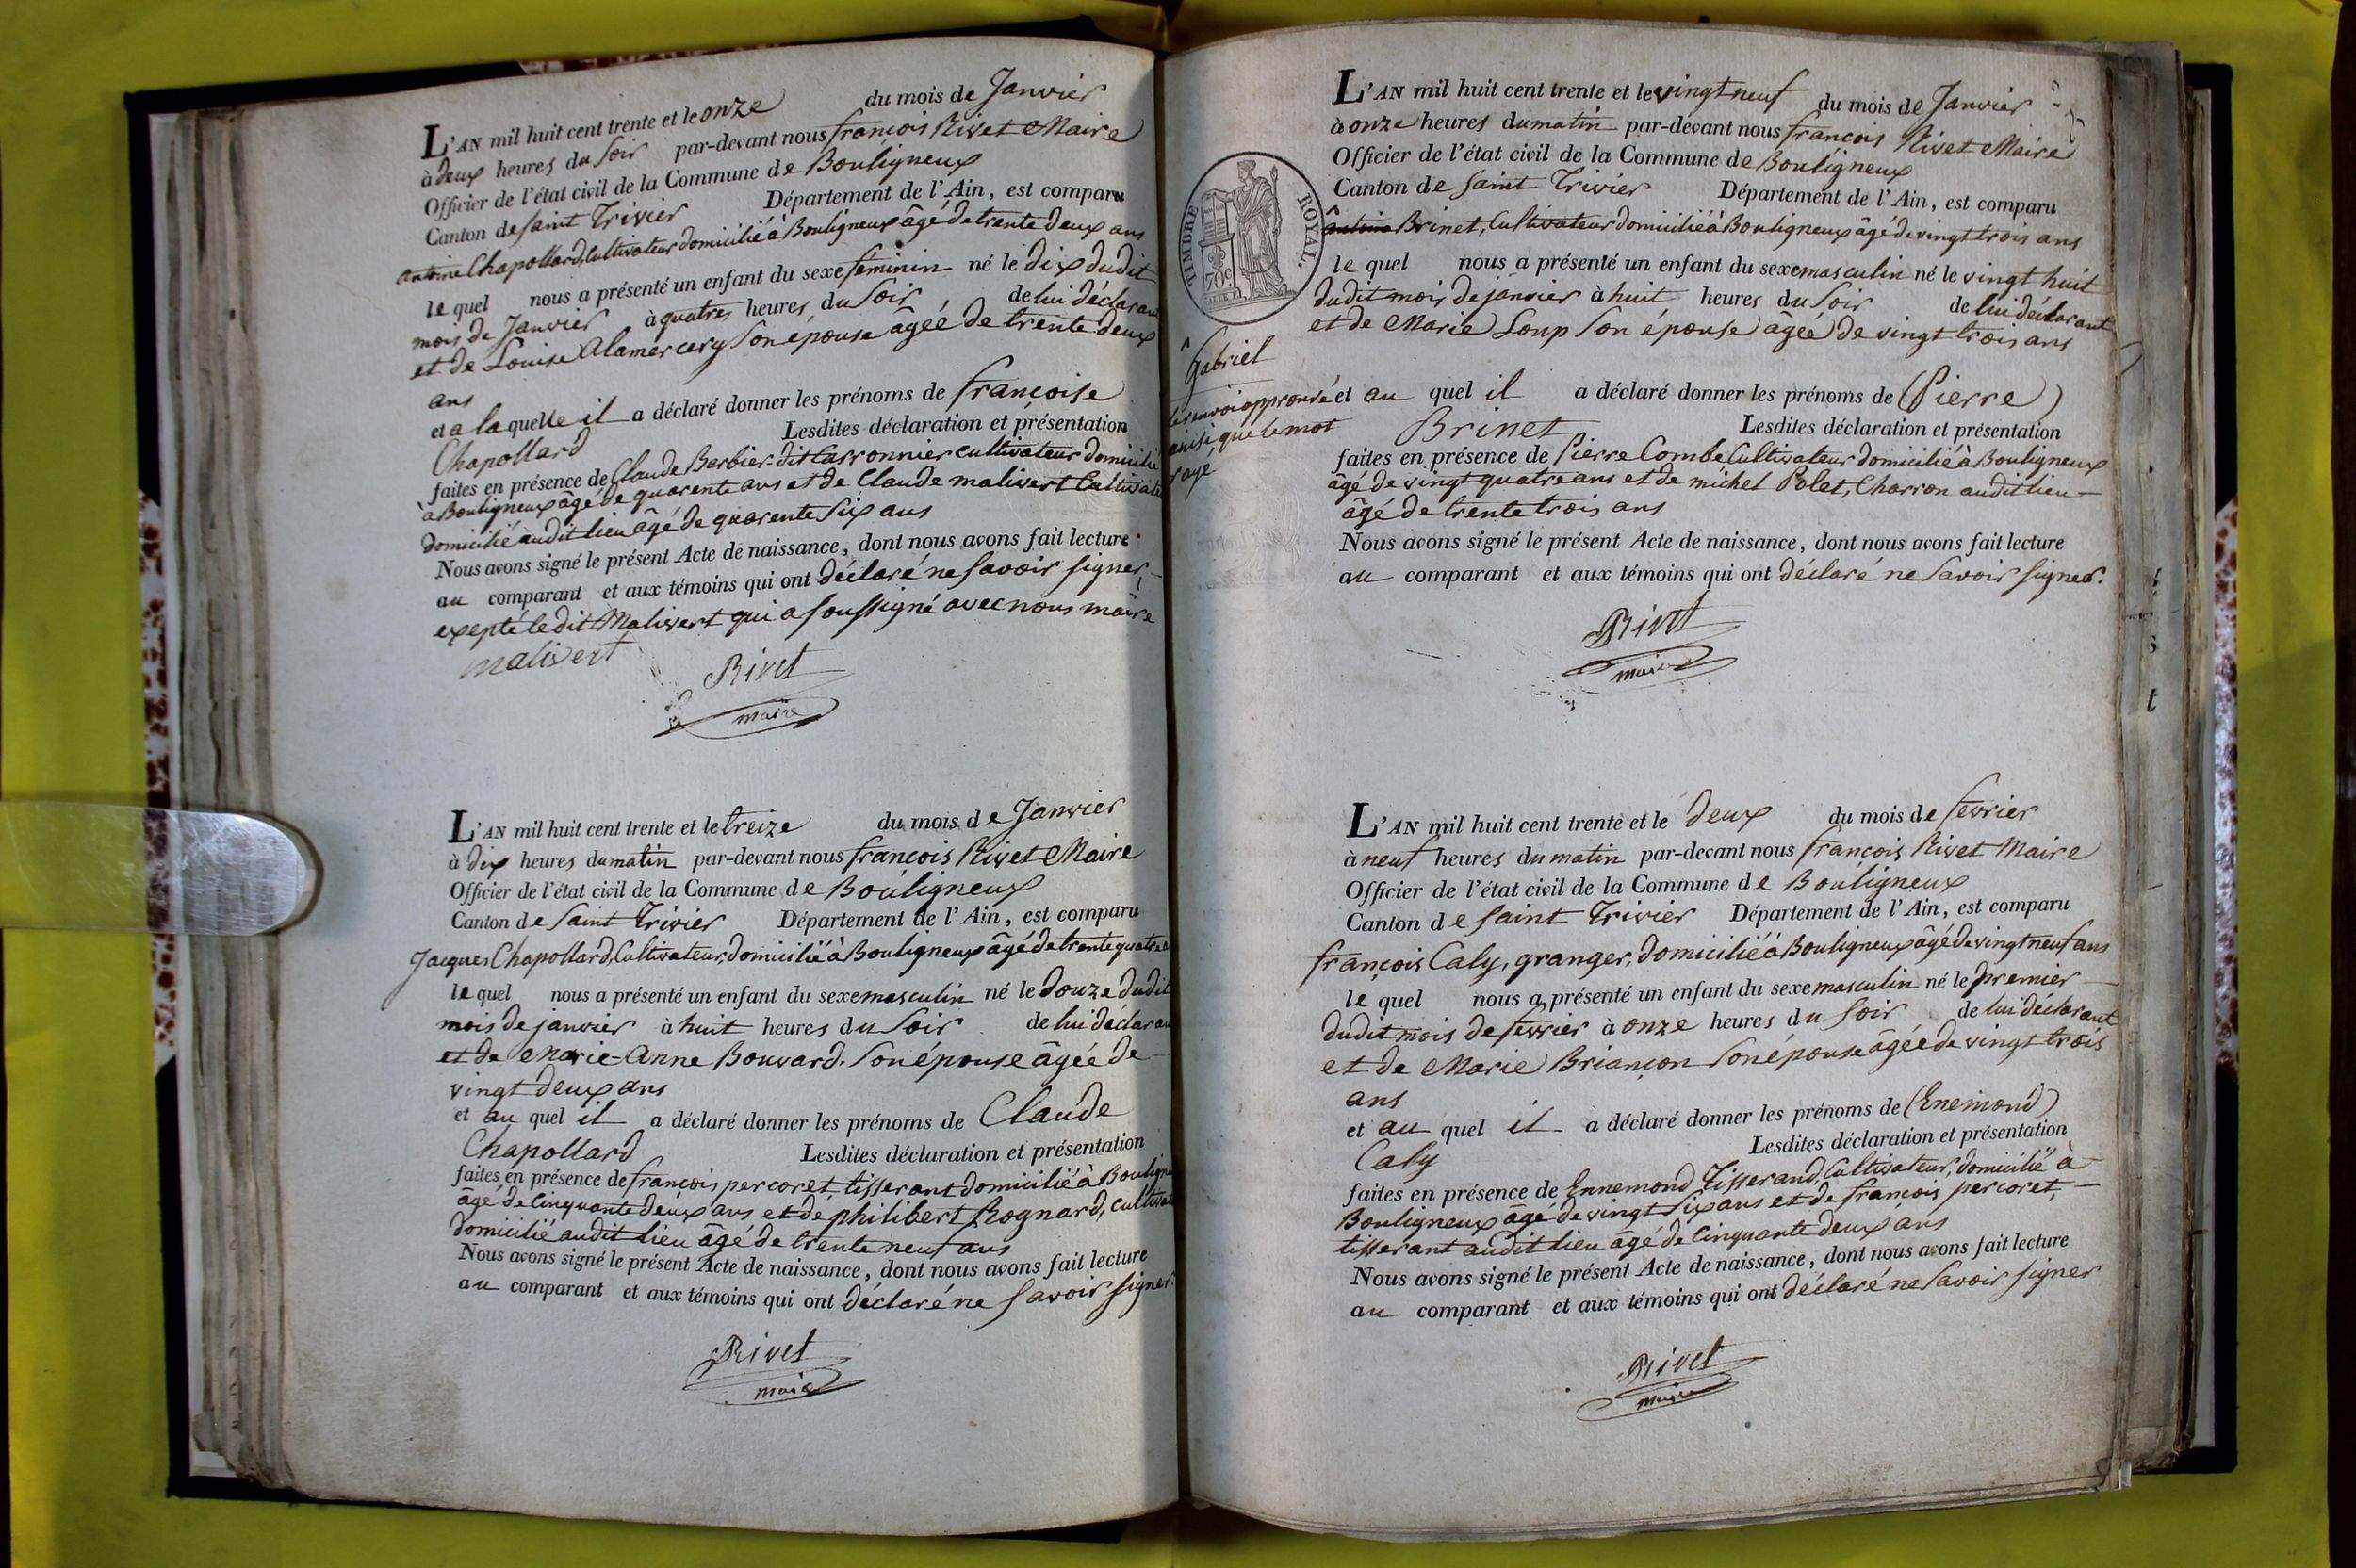 L'AN mil huit cent trente et le onze du mois de Janvier
à deux heures du soir par-devant nous françois Rivet Maire
Officier de l'état civil de la Commune de Bouligneux
Canton de saint Trivier Département de l'Ain, est comparu
antoine Chapollard, Cultivateur domicilié à Bouligneux âgé de trente deux ans
le quel nous a présenté un enfant du sexe feminin né le dix dudit
mois de Janvier à quatres heures du Soir de lui déclarant
et de Louise Alamercery son épouse âgée de trente deux
ans
et a laquelle il a déclaré donner les prénoms de françoise
Chapollard Lesdites déclaration et présentation
faites en présence de Claude Barbier dit Carronnier cultivateur domicilié
à Bouligneux âgé de quarente ans et de Claude malivert Cultivate
domicilié audit lieu âgé de quarente six ans
Nous avons signé le présent Acte de naissance, dont nous avons fait lecture
au comparant et aux témoins qui ont déclaré ne savoir signer,
expepté le dit Malivert qui a soussigné avec nous maire
malivert Rivet
maire
L'AN mil huit cent trente et le treize du mois de Janvier
à dix heures du matin par-devant nous françois Rivet Maire
Officier de l'état civil de la Commune de Bouligneux
Canton de Saint Trivier Département de l'Ain, est comparu
Jacques Chapollard, Cultivateur, domicilié à Bouligneux âgé de trente quatre
le quel nous a présenté un enfant du sexe masculin né le douze dudit
mois de janvier à huit heures du Soir de lui déclarant
et de Marie-Anne Bouvard, son épouse âgée de
vingt deux ans
et au quel il a déclaré donner les prénoms de Claude
Chapollard Lesdites déclaration et présentation
faites en présence de françois percoret tisserant domicilié à Bouligne
âgé de Cinquante deux ans et de philibert Rognard, cultiva
domicilié audit lieu âgé de trente neuf ans
Nous avons signé le présent Acte de naissance, dont nous avons fait lecture
au comparant et aux témoins qui ont déclaré ne savoir signer.
Rivet
maire
L'AN mil huit cent trente et le vingt neuf du mois de Janvier
à onze heures du matin par-devant nous françois Rivet Maire
Officier de l'état civil de la Commune de Bouligneux
Canton de saint Trivier Département de l'Ain, est comparu
antoine Brinet, Cultivateur domicilié à Bouligneux âgé de vingt trois ans
le quel nous a présenté un enfant du sexe masculin né le vingt huit
dudit mois de janvier à huit heures du Soir de lui déclarant
et de Marie Loup son épouse âgée de vingt trois ans
et au quel il a déclaré donner les prénoms de (Pierre)
Brinet Lesdites déclaration et présentation
faites en présence de Pierre Combe Cultivateur domicilié à Bouligneux
âgé de vingt quatre ans et de michel Polet, Charron audit lieu
âgé de trente trois ans
Nous avons signé le présent Acte de naissance, dont nous avons fait lecture
au comparant et aux témoins qui ont déclaré ne savoir signer.
Rivet
maire
TIMBRE ROYAL.
70c
Gabriel
le renvoi approuvé
ainsi que le mot
rayé
L'AN mil huit cent trente et le deux du mois de fevrier
à neuf heures du matin par-devant nous françois Rivet Maire
Officier de l'état civil de la Commune de Bouligneux
Canton de saint Trivier Département de l'Ain, est comparu
françois Caly, granger, domicilié à Bouligneux âgé de vingt neuf ans
le quel nous a présenté un enfant du sexe masculin né le premier
dudit mois de fevrier à onze heures du soir de lui déclarant
et de Marie Briançon son épouse âgée de vingt trois
ans
et au quel il a déclaré donner les prénoms de (Enemond)
Caly Lesdites déclaration et présentation
faites en présence de Ennemond Tisserand, Cultivateur, domicilié à
Bouligneux âgé de vingt six ans et de françois percoret,
tisserant audit lieu âgé de Cinquante deux ans
Nous avons signé le présent Acte de naissance, dont nous avons fait lecture
au comparant et aux témoins qui ont déclaré ne savoir signer
Rivet
maire